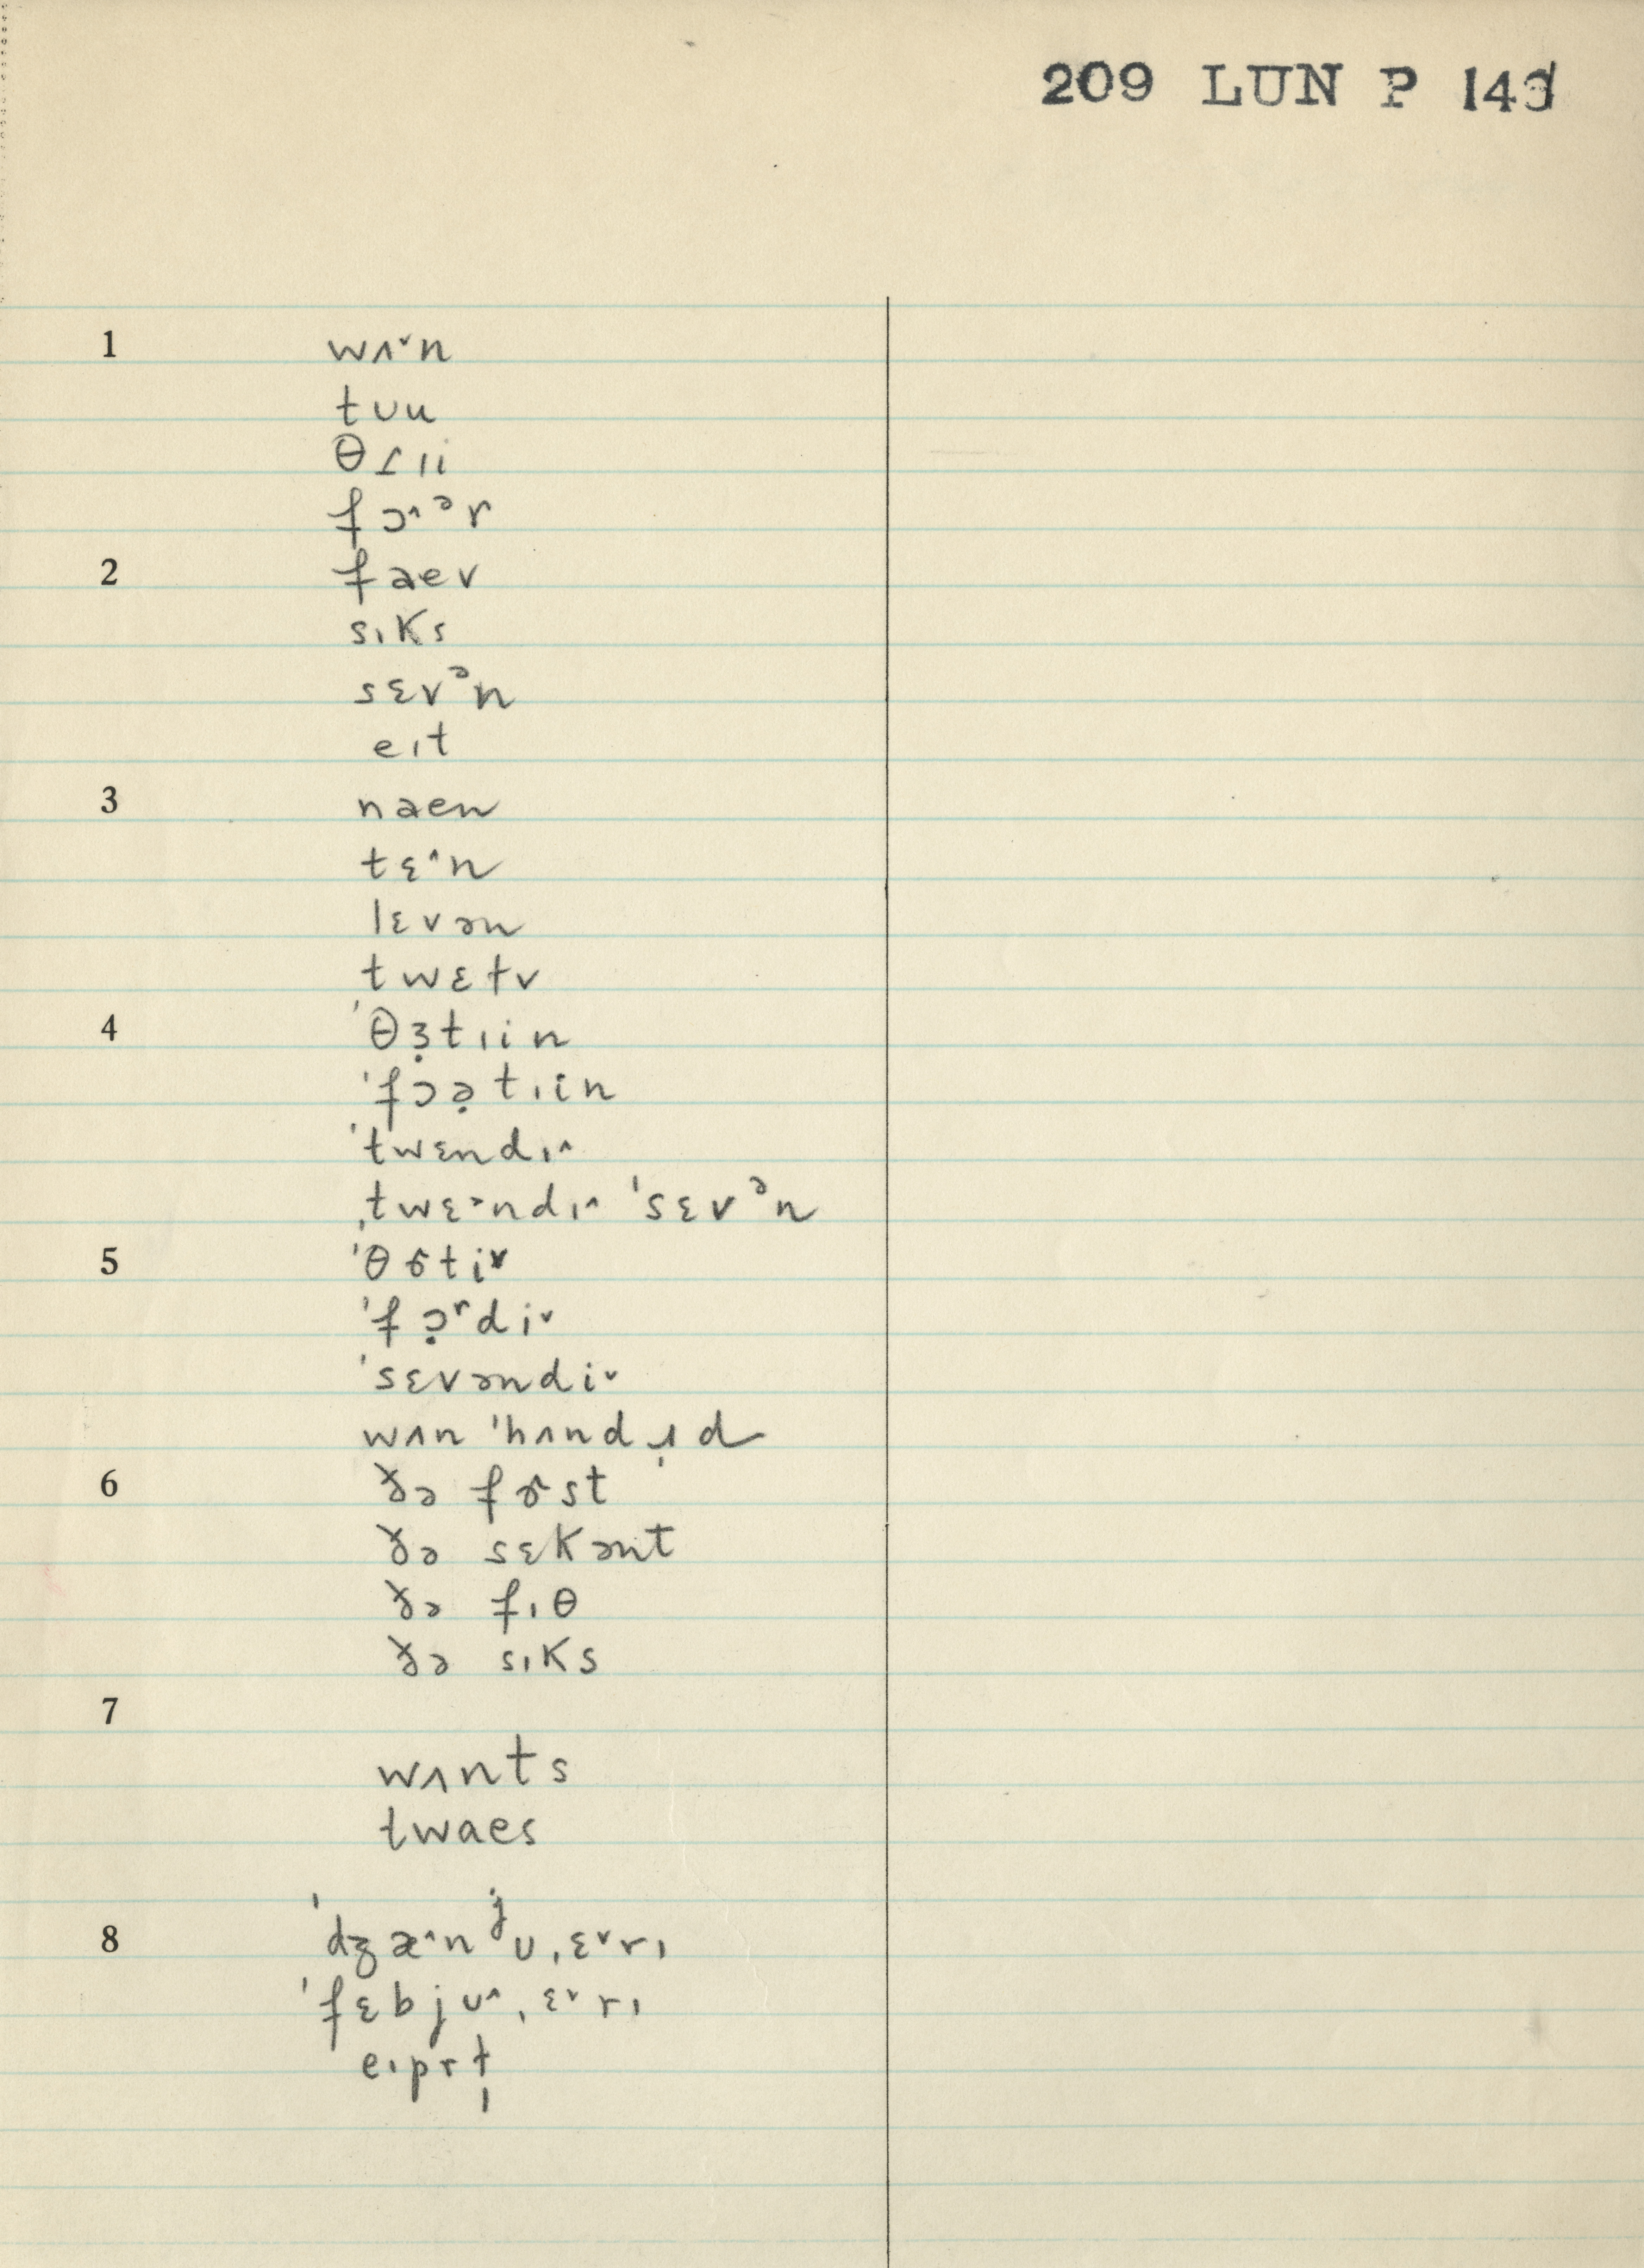 209 LUN P 143
1 wʌ˅n
tuu
θɹıi
fɔ˄ᵊr
2 faev
sıKs
sɛvᵊn
eıt
3 naen
tɛ˄n
lɛvən
twɛtv
4 ˈθɜ̣tıin
ˈfɔə̣tıin
ˈtwɛndı˄
ˌtwɛ˄ndı˄ ˈsɛvᵊn
5 ˈθɚti˅
ˈfɔ̣ʳdi˅
ˈsɛvəndi˅
wʌn ˈhʌndɹ̩d
6 ðə fɚst
ðə sɛKənt
ðə fıθ
ðə sıKs
7
wʌnts
twaes
8 ˈdʒæ˄nʲuˌɛ˅rı
ˈfɛbju˄ˌɛ˅rı
eıprɫ̩